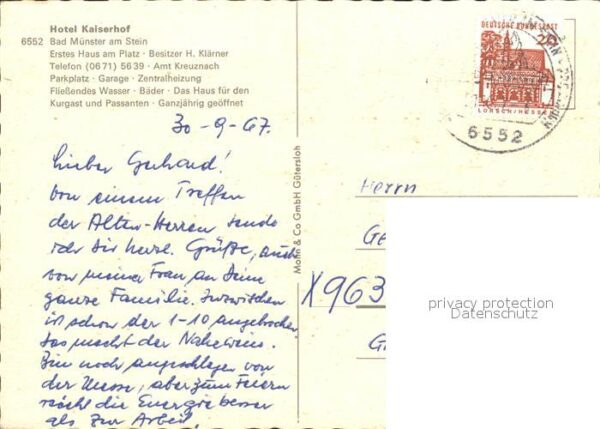 Hotel Kaiserhof
6552 Bad Münster am Stein
Erstes Haus am Platz · Besitzer H. Klärner
Telefon (0671) 5639 · Amt Kreuznach
Parkplatz · Garage · Zentralheizung
Fließendes Wasser · Bäder · Das Haus für den
Kurgast und Passanten · Ganzjährig geöffnet
30-9-67.
Lieber Gerhard!
Von einem Treffen
der Alten-Herren sende
ich Dir herzl. Grüße, auch
von meiner Frau an Deine
ganze Familie. Inzwischen
ist schon der 1-10 angebrochen,
das macht der Nahewein.
Bin noch angeschlagen von
der Messe, aber zum Feiern
reicht die Energie besser
als zur Arbeit.
Mohn & Co GmbH Gütersloh
DEUTSCHE BUNDESPOST
20
LORSCH/HESSEN
6552
Herrn
Ge
X963
G
privacy protection
Datenschutz